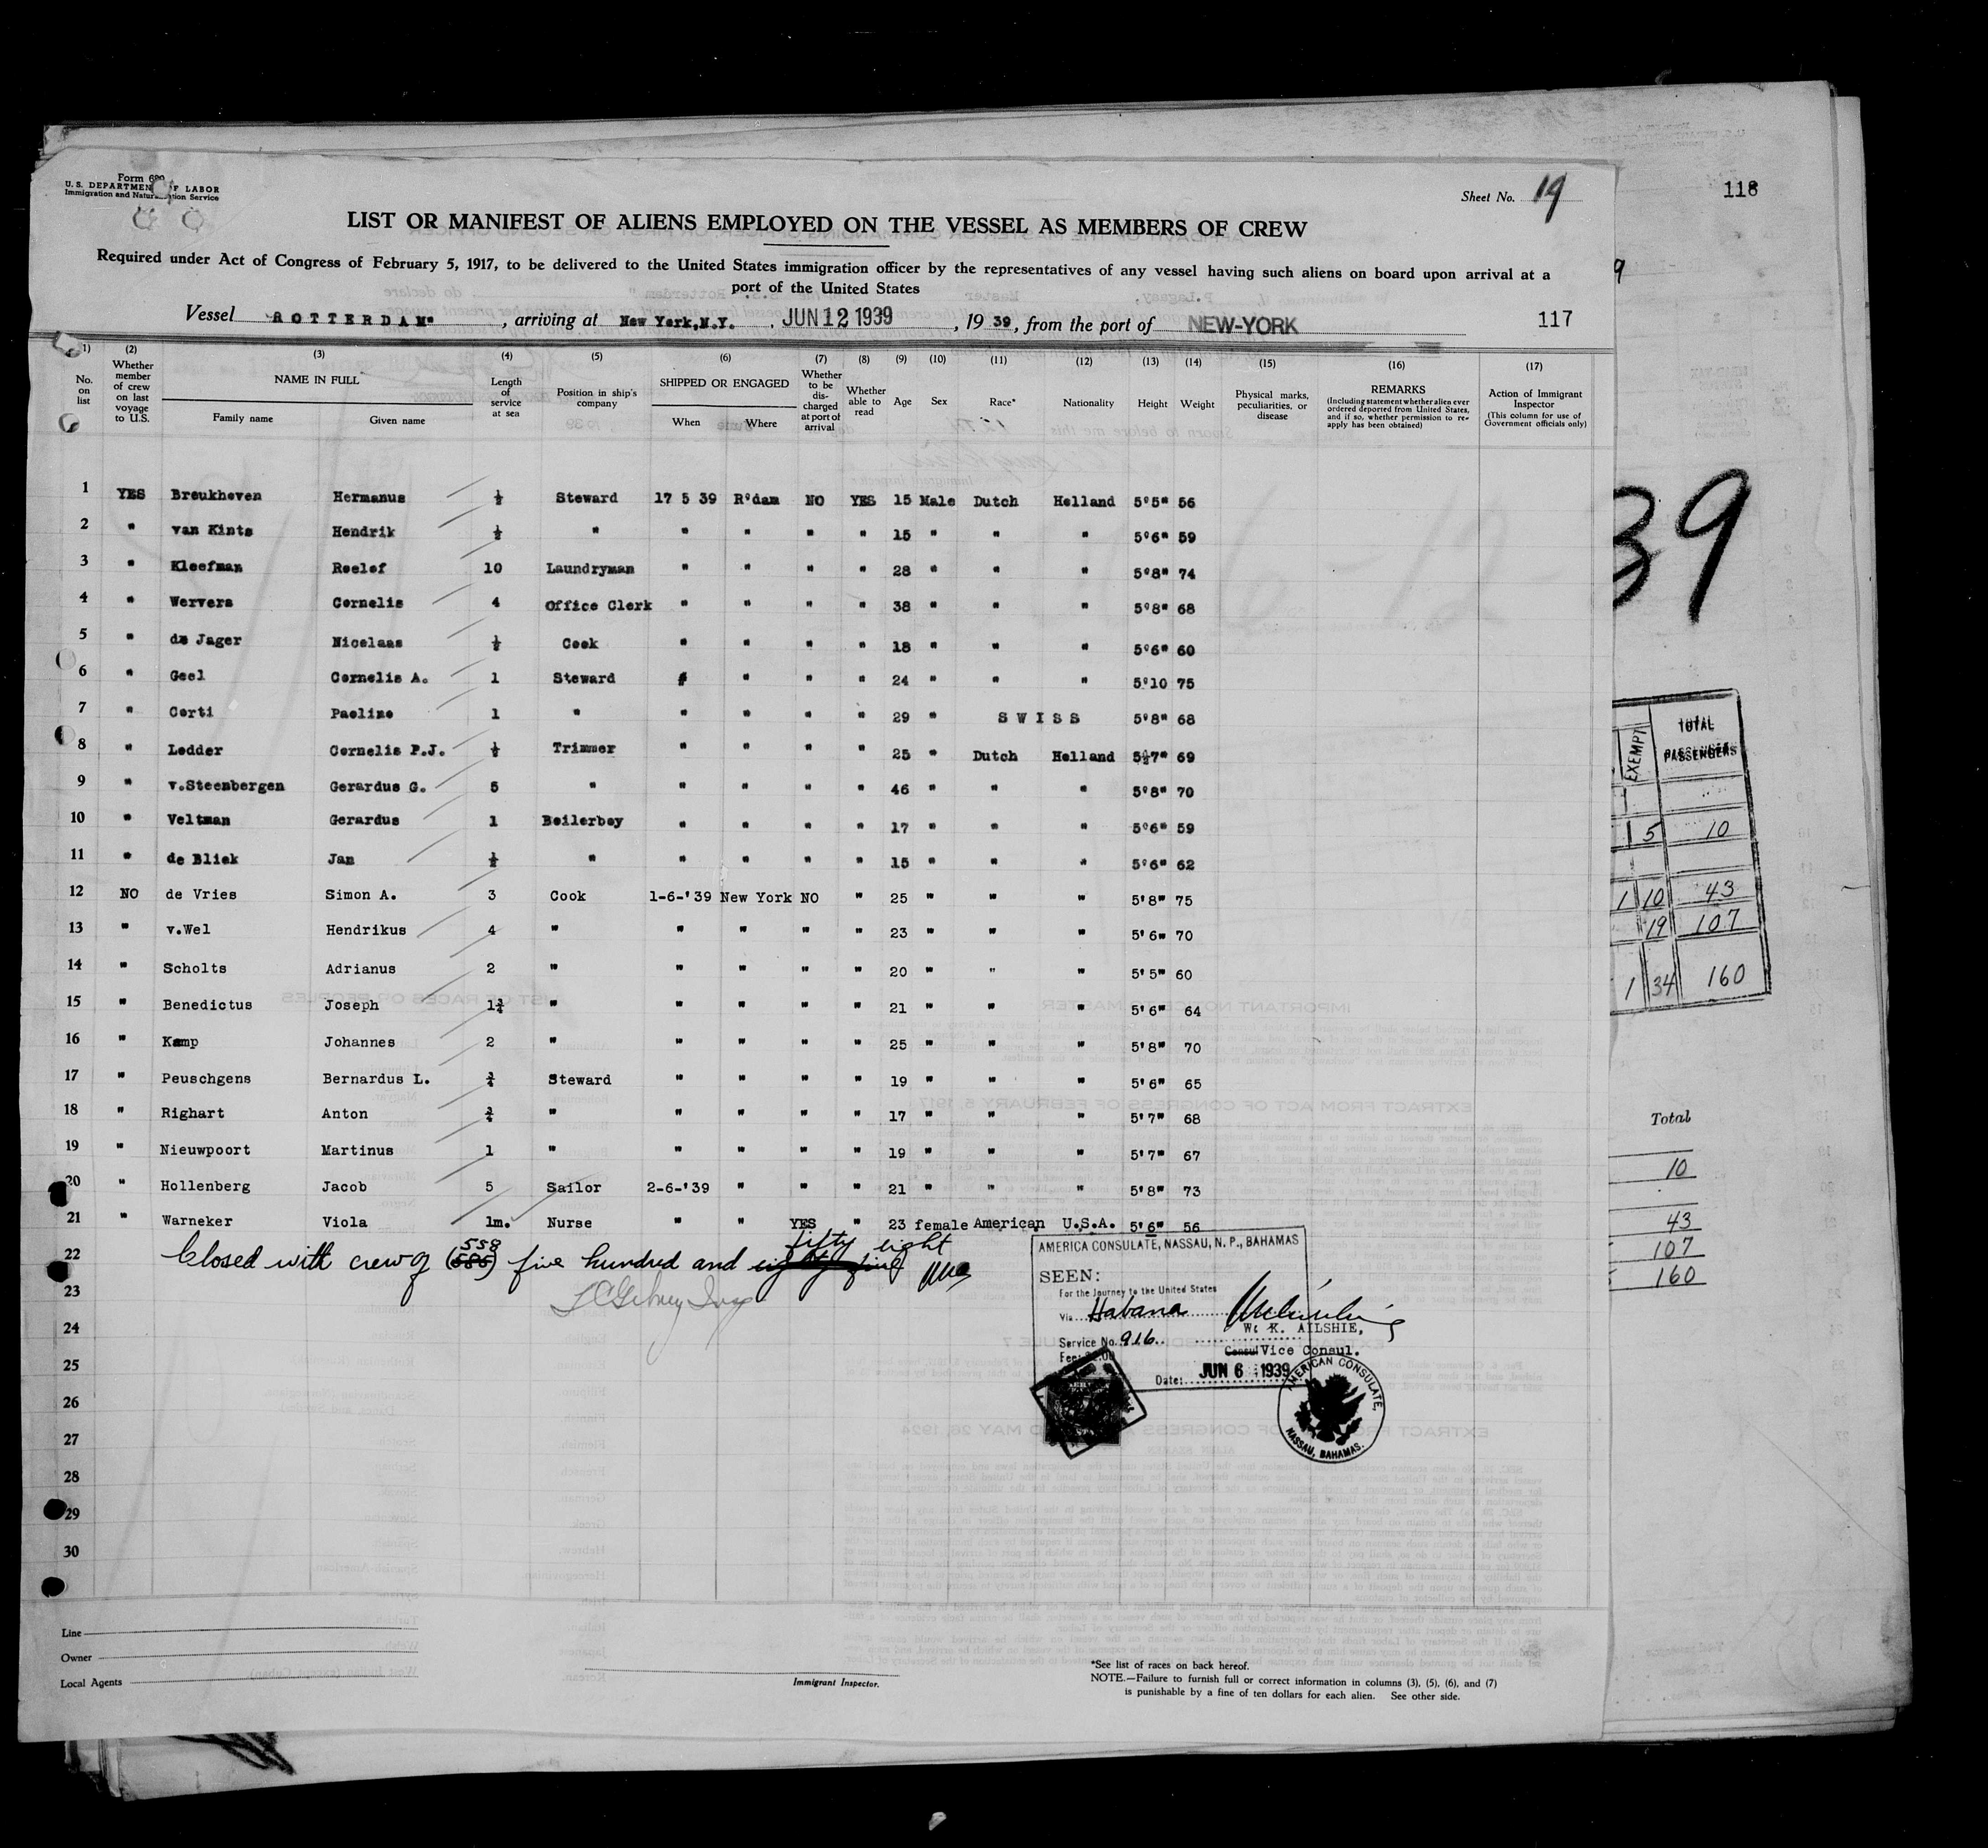 118
Form 689
U. S. DEPARTMENT OF LABOR
Immigration and Naturalization Service
Sheet No. 19
LIST OR MANIFEST OF ALIENS EMPLOYED ON THE VESSEL AS MEMBERS OF CREW
Required under Act of Congress of February 5, 1917, to be delivered to the United States immigration officer by the representatives of any vessel having such aliens on board upon arrival at a
port of the United States
Vessel ROTTERDAM" , arriving at New York,N.Y. , JUN 12 1939 , 19 39, from the port of NEW-YORK 117
(1) (2) (3) (4) (5) (6) (7) (8) (9) (10) (11) (12) (13) (14) (15) (16) (17)
No. on list
Whether member of crew on last voyage to U.S.
NAME IN FULL
Family name Given name
Length of service at sea
Position in ship's company
SHIPPED OR ENGAGED
When Where
Whether to be discharged at port of arrival
Whether able to read
Age Sex Race* Nationality Height Weight
Physical marks, peculiarities, or disease
REMARKS
(Including statement whether alien ever ordered deported from United States, and if so, whether permission to reapply has been obtained)
Action of Immigrant Inspector
(This column for use of Government officials only)
1 YES Breukhoven Hermanus ½ Steward 17 5 39 R'dam NO YES 15 Male Dutch Holland 5'5" 56
2 " van Kints Hendrik ½ " " " " " 15 " " " 5'6" 59
3 " Kleefman Roelof 10 Laundryman " " " " 28 " " " 5'8" 74
4 " Wervers Cornelis 4 Office Clerk " " " " 38 " " " 5'8" 68
5 " de Jager Nicolaas ½ Cook " " " " 18 " " " 5'6" 60
6 " Geel Cornelis A. 1 Steward " " " " 24 " " " 5'10 75
7 " Corti Paolino 1 " " " " " 29 " SWISS 5'8" 68
8 " Ledder Cornelis P.J. ½ Trimmer " " " " 25 " Dutch Holland 5½7" 69
9 " v.Steenbergen Gerardus G. 5 " " " " " 46 " " " 5'8" 70
10 " Veltman Gerardus 1 Boilerboy " " " " 17 " " " 5'6" 59
11 " de Bliek Jan ½ " " " " " 15 " " " 5'6" 62
12 NO de Vries Simon A. 3 Cook 1-6-'39 New York NO " 25 " " " 5'8" 75
13 " v.Wel Hendrikus 4 " " " " " 23 " " " 5'6" 70
14 " Scholts Adrianus 2 " " " " " 20 " " " 5'5" 60
15 " Benedictus Joseph 1¾ " " " " " 21 " " " 5'6" 64
16 " Kamp Johannes 2 " " " " " 25 " " " 5'8" 70
17 " Peuschgens Bernardus L. ¾ Steward " " " " 19 " " " 5'6" 65
18 " Righart Anton ¾ " " " " " 17 " " " 5'7" 68
19 " Nieuwpoort Martinus 1 " " " " " 19 " " " 5'7" 67
20 " Hollenberg Jacob 5 Sailor 2-6-'39 " " " 21 " " " 5'8" 73
21 " Warneker Viola 1m. Nurse " " YES " 23 female American U.S.A. 5'6" 56
558 fifty eight
22 Closed with crew of (585) five hundred and eighty five
23
24
25
26
27
28
29
30
AMERICA CONSULATE, NASSAU, N. P., BAHAMAS
SEEN:
For the Journey to the United States
Via Habana
W. K. AILSHIE,
Service No. 916
Consul Vice Consul.
Fee:
Date: JUN 6 1939
AMERICAN CONSULATE, NASSAU, BAHAMAS.
Line
Owner
Local Agents
Immigrant Inspector.
*See list of races on back hereof.
NOTE.—Failure to furnish full or correct information in columns (3), (5), (6), and (7)
is punishable by a fine of ten dollars for each alien. See other side.
9
39
EXEMPT TOTAL PASSENGERS
1 5 10
1 10 43
19 107
1 34 160
Total
10
43
107
160